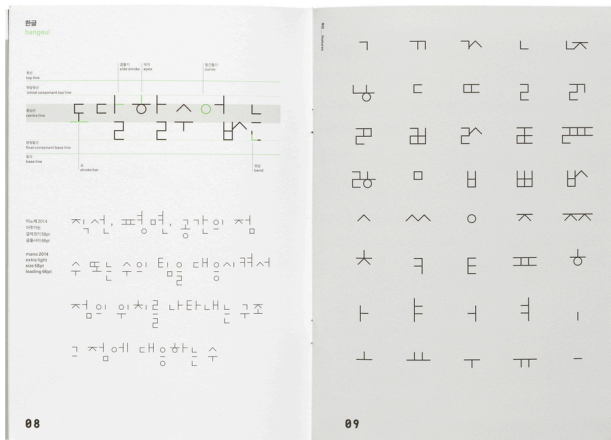 한글
hangeul
곁줄기
side stroke
이응
eyes
둥근줄기
curves
윗선
top line
첫닿윗선
initial component top line
중심선
centre line
받침밑선
final component base line
밑선
base line
보
stroke bar
맺음
bend
마노체 2014
아주가는
글자크기 58pt
글줄사이 68pt
직선, 평면, 공간의 점
mano 2014
extra light
size 58pt
leading 68pt
수 또는 수의 팀을 대응시켜서
점의 위치를 나타내는 구조
그 점에 대응하는 수
08
ㄱ ㄲ ㄳ ㄴ ㄵ
ㄶ ㄷ ㄸ ㄹ ㄺ
ㄻ ㄼ ㄽ ㄿ ㄾ
ㅀ ㅁ ㅂ ㅃ ㅄ
ㅅ ㅆ ㅇ ㅈ ㅉ
ㅊ ㅋ ㅌ ㅍ ㅎ
ㅏ ㅑ ㅓ ㅕ ㅣ
ㅗ ㅛ ㅜ ㅠ ㅡ
09